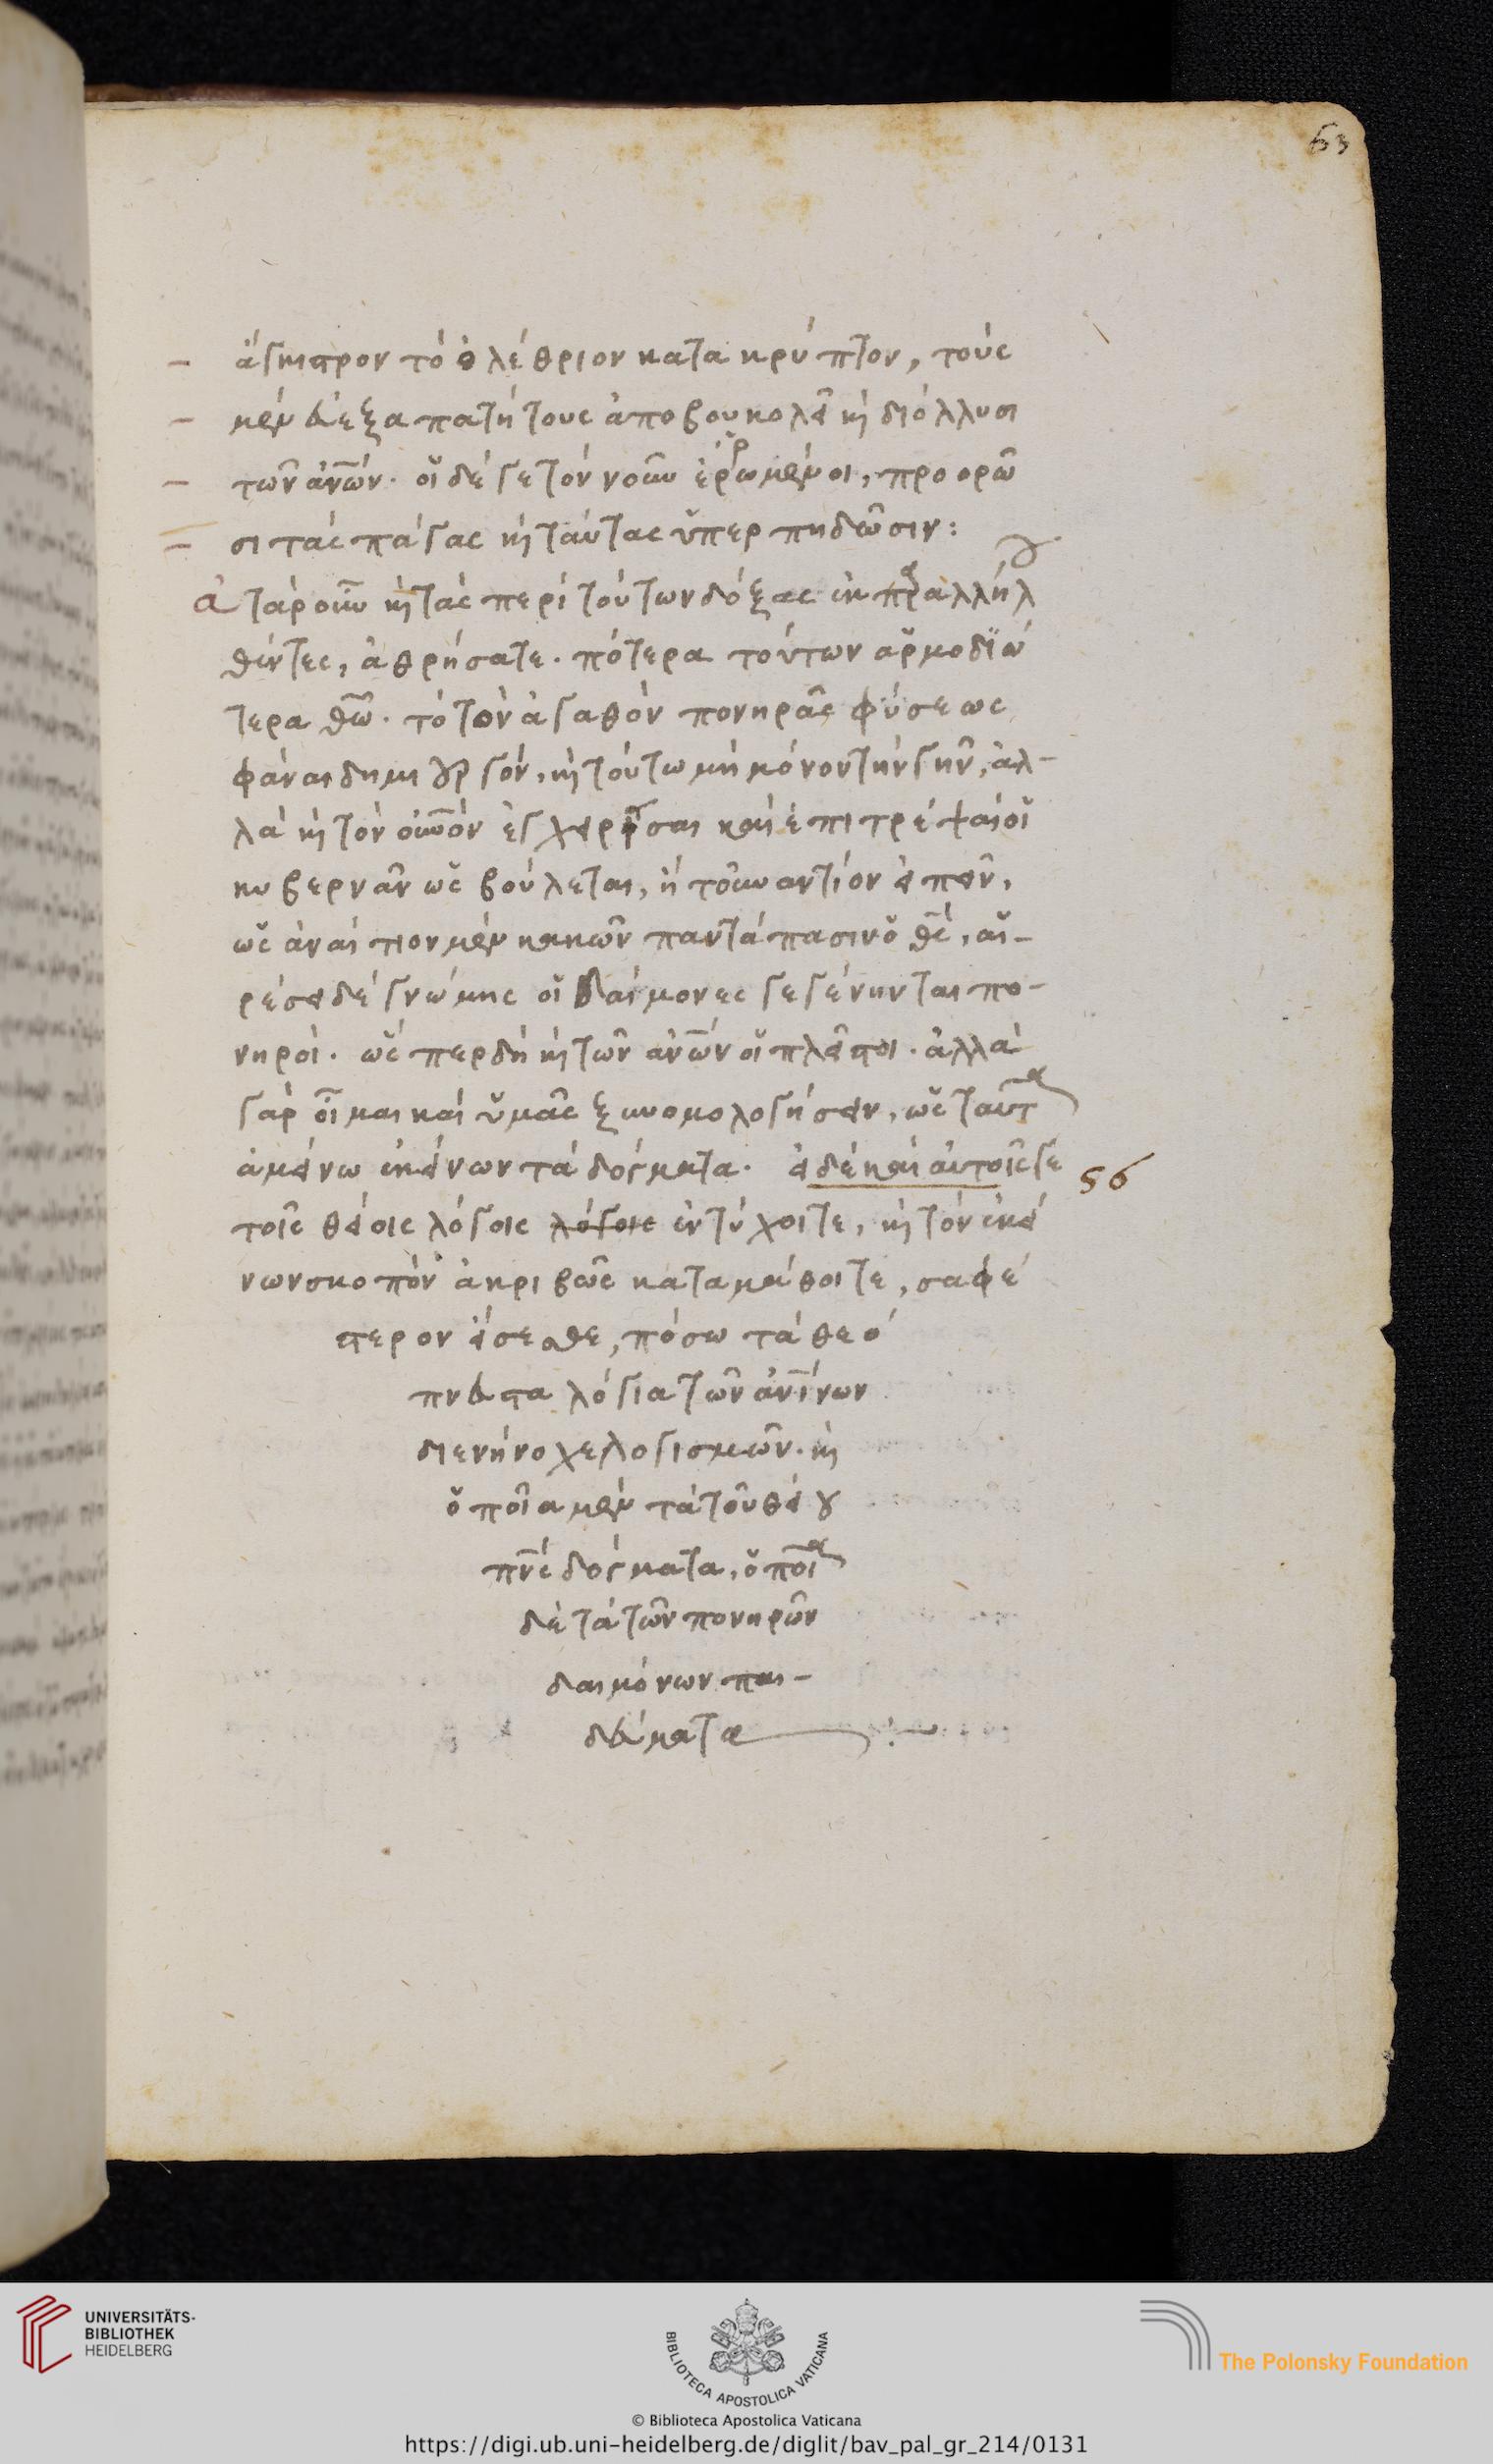 63
ἄγκιστρον τὸ ὀλέθριον κατακρύπτον, τοὺς
μὲν εὐεξαπατήτους ἀποβουκολεῖ καὶ διόλλυσι
τῶν ἀνῶν. οἱ δέ γε τὸν νοῦν ἐρρωμένοι, προορῶ
σι τὰς πάγας καὶ ταύτας ὑπερπηδῶσιν:
ἀτὰρ οὖν καὶ τὰς περὶ τούτων δόξας ἐκ παραλλήλου
θέντες, ἀθρήσατε. πότερα τούτων ἁρμοδιώ
τερα θῶ. τὸ τὸν ἀγαθὸν πονηρᾶς φύσεως
φάναι δημιουργόν, καὶ τούτω μὴ μόνον τὴν γῆν, ἀλ-
λὰ καὶ τὸν οὐνὸν ἐγχειρίσαι καὶ ἐπιτρέψαι οἱ
κυβερνᾶν ὡς βούλεται, ἢ τοὐναντίον εἰπεῖν,
ὡς ἀναίτιον μὲν κακῶν παντάπασιν ὁ θς, αἱ-
ρέσει δὲ γνώμης οἱ δαίμονες γεγένηνται πο-
νηροί. ὥσπερ δὴ καὶ τῶν ἀνῶν οἱ πλεῖστοι. ἀλλὰ
γὰρ οἶμαι καὶ ὑμᾶς ξυνομολογήσειν, ὡς ταῦτα
ἀμείνω ἐκείνων τὰ δόγματα. εἰ δὲ καὶ αὐτοῖς γε 56
τοῖς θείοις λόγοις λόγοις ἐντύχοιτε, καὶ τὸν ἐκεί
νων σκοπὸν ἀκριβῶς καταμάθοιτε, σαφέ
στερον εἴσεσθε, πόσω τὰ θεό
πνευστα λόγια τῶν ἀνίνων
διενήνοχε λογισμῶν. καὶ
ὁποῖα μὲν τὰ τοῦ θείου
πνς δόγματα, ὁποῖα
δὲ τὰ τῶν πονηρῶν
δαιμόνων παι-
δεύματα
UNIVERSITÄTS-
BIBLIOTHEK
HEIDELBERG
BIBLIOTECA APOSTOLICA VATICANA
The Polonsky Foundation
© Biblioteca Apostolica Vaticana
https://digi.ub.uni-heidelberg.de/diglit/bav_pal_gr_214/0131